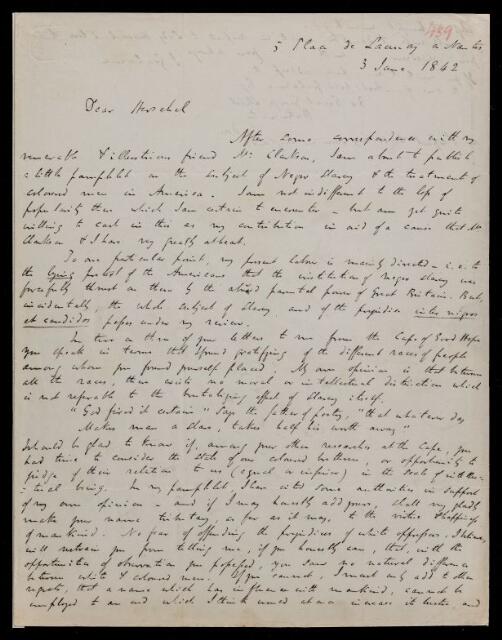 739
5 Place de Launay a Nantes
3 June 1842
Dear Herschel
After some correspondence with my
venerable & illustrious friend Mr Clarkson, I am about to publish
a little pamphlet on the subject of Negro Slavery & the treatment of
coloured men in America. I am not indifferent to the loss of
popularity there which I am certain to encounter – but am yet quite
willing to cast in this as my contribution in aid of a cause that Mr
Clarkson & I have very greatly at heart.
To one particular point, my present labor is mainly directed – i.e. to
the lying pretext of the Americans that the institution of negro slavery was
forcefully thrust on them by the abused parental power of Great Britain. But,
incidentally, the whole subject of slavery, and of the prejudice inter nigros
et candidos passes under my review.
In two or three of your letters to me from the Cape of Good Hope
you speak in terms that I found gratifying of the different races of people
among whom you found yourself placed. My own opinion is that between
all the races, there exists no moral or intellectual distinction which
is not referable to the brutalizing effect of slavery itself.
"God fixed it certain" says the father of poetry, "that whatever day
Makes man a slave, takes half his worth away"
I should be glad to know if, among your other researches at the Cape, you
had time to consider the state of our coloured brethren, or opportunity to
judge of their relation to us (equal or inferior) in the scale of intellec-
-tual being. In my pamphlet I have cited some authorities in support
of my own opinion – and if I may honestly add yours, shall very gladly
make your name tributary, as far as it may, to the
of mankind. No fear of offending the prejudices of white oppressors, I believe,
will restrain you from telling me, if you honestly can, that, with the
opportunities of observation you possessed, you saw no natural difference
between white & coloured men. If you cannot, I must only add to other
regrets, that a name which has influence with mankind, cannot be
employed to an end which I think would at once increase its lustre, and